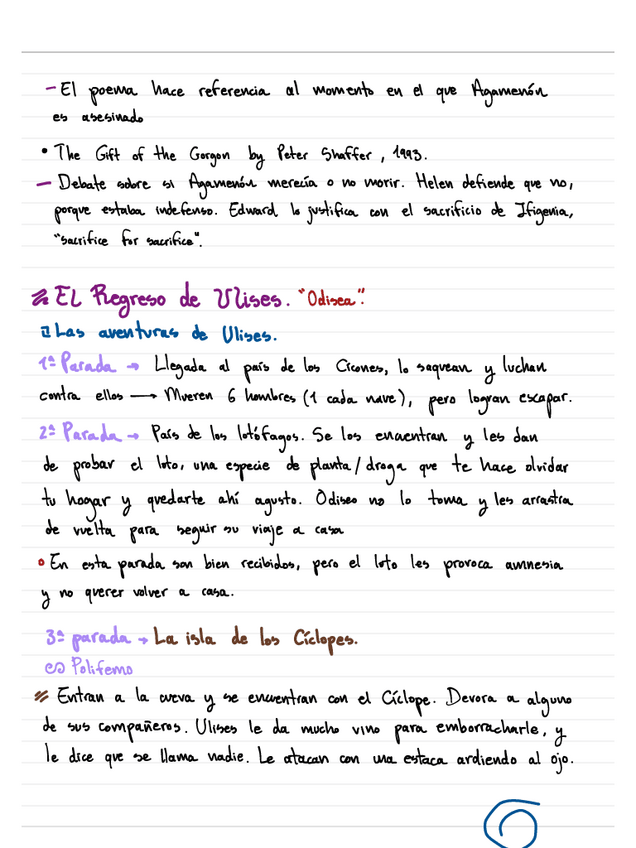 - El poema hace referencia al momento en el que Agamenón
es asesinado
• The Gift of the Gorgon by Peter Shaffer, 1993.
- Debate sobre si Agamenón merecía o no morir. Helen defiende que no,
porque estaba indefenso. Edward lo justifica con el sacrificio de Ifigenia,
"sacrifice for sacrifice".
El Regreso de Ulises. "Odisea".
Las aventuras de Ulises.
1ª Parada → Llegada al país de los Cicones, lo saquean y luchan
contra ellos → Mueren 6 hombres (1 cada nave), pero logran escapar.
2ª Parada → País de los lotófagos. Se los encuentran y les dan
de probar el loto, una especie de planta/droga que te hace olvidar
tu hogar y quedarte ahí agusto. Odiseo no lo toma y les arrastra
de vuelta para seguir su viaje a casa
• En esta parada son bien recibidos, pero el loto les provoca amnesia
y no querer volver a casa.
3ª parada → La isla de los Cíclopes.
Polifemo
Entran a la cueva y se encuentran con el Cíclope. Devora a alguno
de sus compañeros. Ulises le da mucho vino para emborracharle, y
le dice que se llama nadie. Le atacan con una estaca ardiendo al ojo.